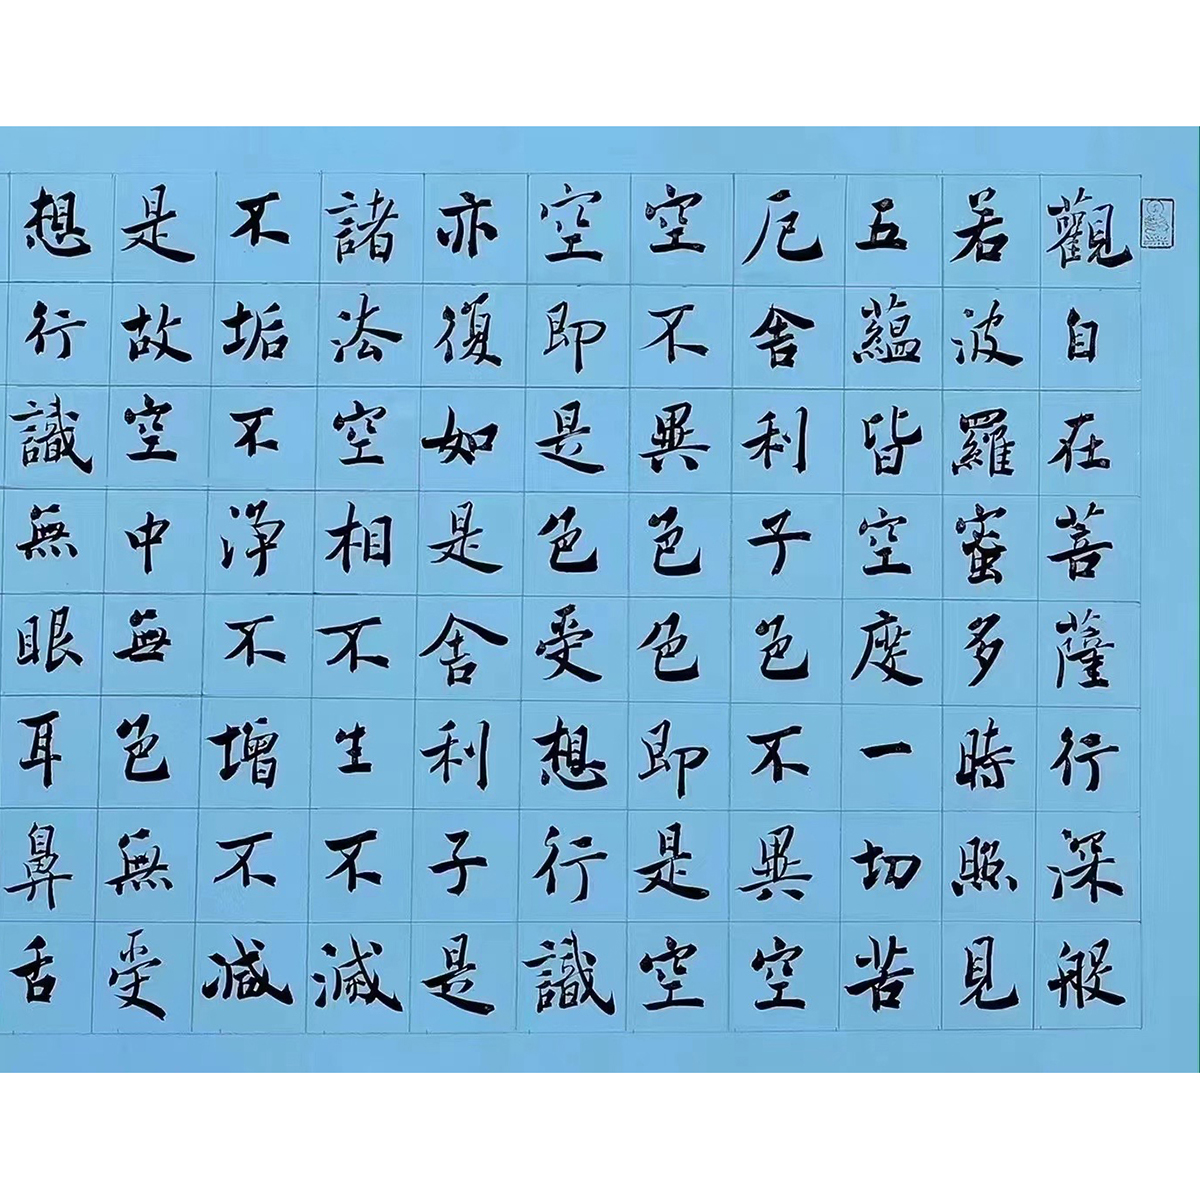 觀自在菩薩行深般
若波羅蜜多時照見
五蘊皆空度一切苦
厄舍利子色不異空
空不異色色即是空
空即是色受想行識
亦復如是舍利子是
諸法空相不生不滅
不垢不淨不增不減
是故空中無色無受
想行識無眼耳鼻舌